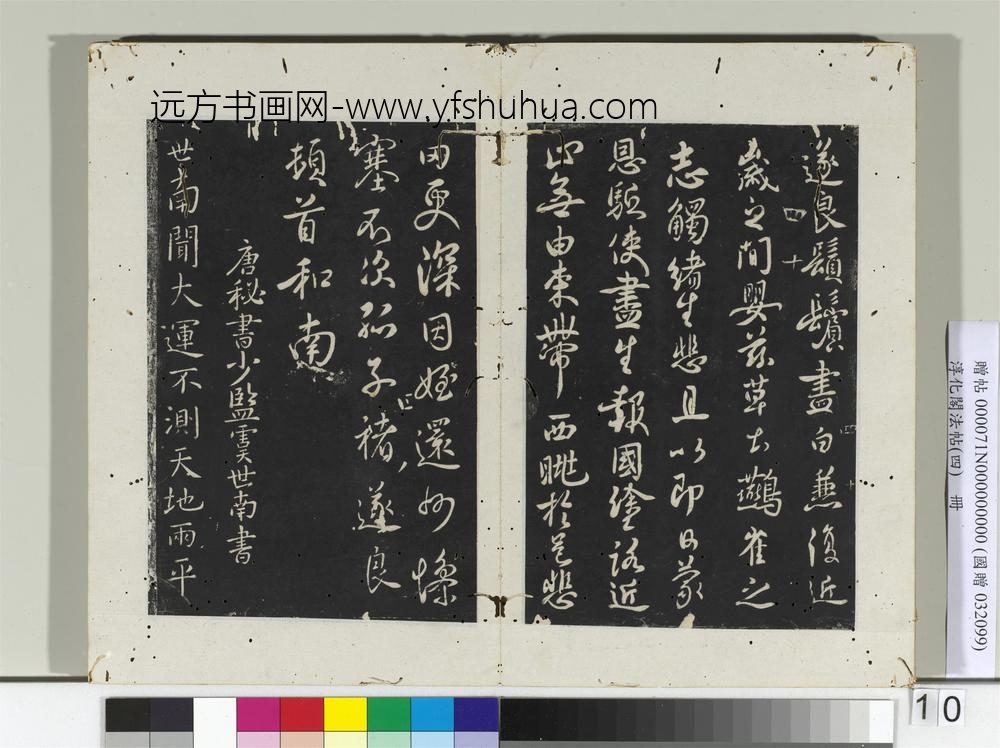 远方书画网-www.yfshuhua.com
遂良鬚鬢盡白兼復近
歲之間嬰茲草土鷰雀之
志觸緒生悲且以即日蒙
恩驅使盡生報國塗路近
止無由束帶西眺於邑悲
因更深因姪還州慘
塞不次孤子褚遂良
頓首和南
唐秘書少監虞世南書
世南聞大運不測天地兩平
贈帖 000071N000000000 (國贈 032099)
淳化閣法帖(四) 冊
10